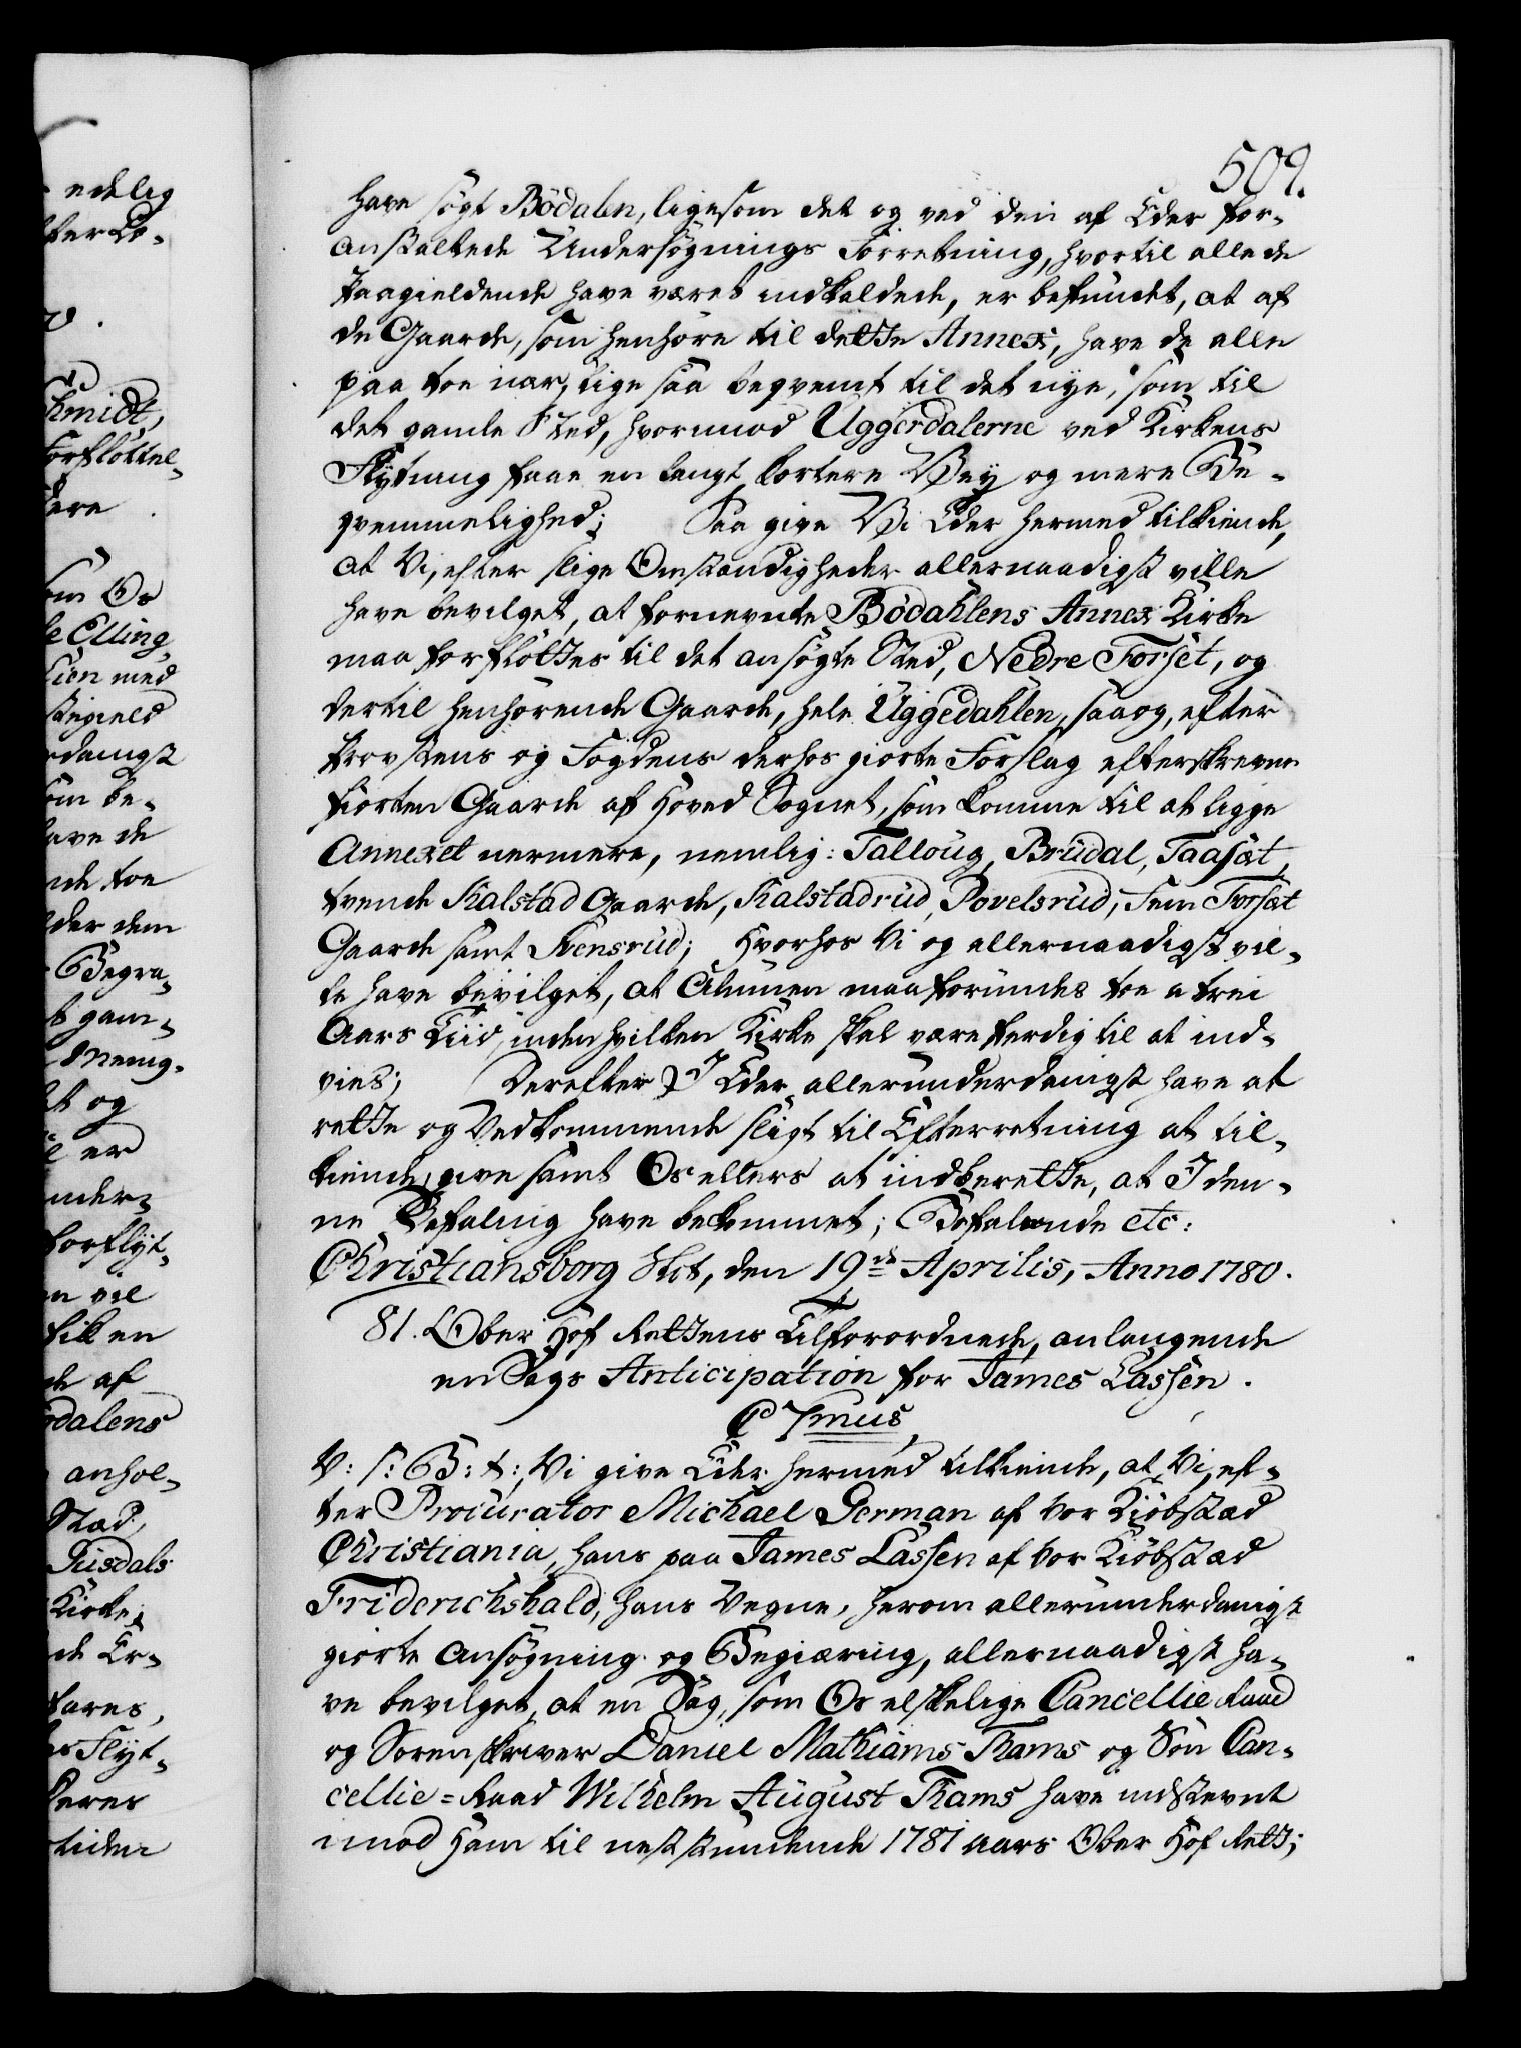 509.
have søgt Bödalen, ligesom det og ved den af Eder for-
anstaltede Undersøgnings Forretning, hvortil alle de
Paagieldende have været indkaldede, er befundet, at af
de Gaarde, som henhøre til dette Annex, have de alle
paa toe nær, lige saa beqvemt til det nye, som til
det gamle Sted, hvorimod Uggerdalerne ved Kirkens
Flytning faae en langt kortere Vey og mere Be-
qvemmelighed; Saa give Vi Eder hermed tilkiende,
at Vi, efter slige Omstændigheder allernaadigst ville
have bevilget, at fornevnte Bödahlens Annex Kirke
maa forfløttes til det ansøgte Sted, Nedre Forset, og
dertil henhørende Gaarde, hele Uggedahlen, saa og, efter
Provstens og Fogdens derhos giorte Forslag efterskrevne
fiorten Gaarde af Hoved Sognet, som komme til at ligge
Annexet nermere, nemlig: Talloug, Brudal, Taasæt,
tvende Kalstad Gaarde, Kalstadrud, Povelsrud, Fem Forsæt
Gaarde samt Svensrud; Hvorhos Vi og allernaadigst vil-
le have bevilget, at Almuen maa forundes toe a trei
Aars Tiid, inden hvilken Kirke skal være færdig til at ind-
vies; Derefter I Eder allerunderdanigst have at
rette og Vedkommende sligt til Efterretning at til-
kiende give samt Os ellers at indberette, at I den-
ne Befaling have bekommet; Befalende etc:
Christiansborg Slot, den 19de Aprilis, Anno 1780.
81. Ober Hof Rettens Tilforordnede, anlangende
en Sags Anticipation for James Lassen.
C 7mus
V: S: G: t:, Vi give Eder hermed tilkiende, at Vi, ef-
ter Procurator Michael German af vor Kiøbstæd
Christiania, hans paa James Lassen af vor Kiøbstæd
Friderichshald, hans Vegne, herom allerunderdanigst
giorte Ansøgning og Begiæring, allernaadigst ha-
ve bevilget, at en Sag, som Os elskelige Cancellie Raad
og Sorenskriver Daniel Mathiams Thams og Søn Can-
cellie=Raad Wilhelm August Thams have indstevnt
imod Ham til neststundende 1781 Aars Ober Hof Rett;